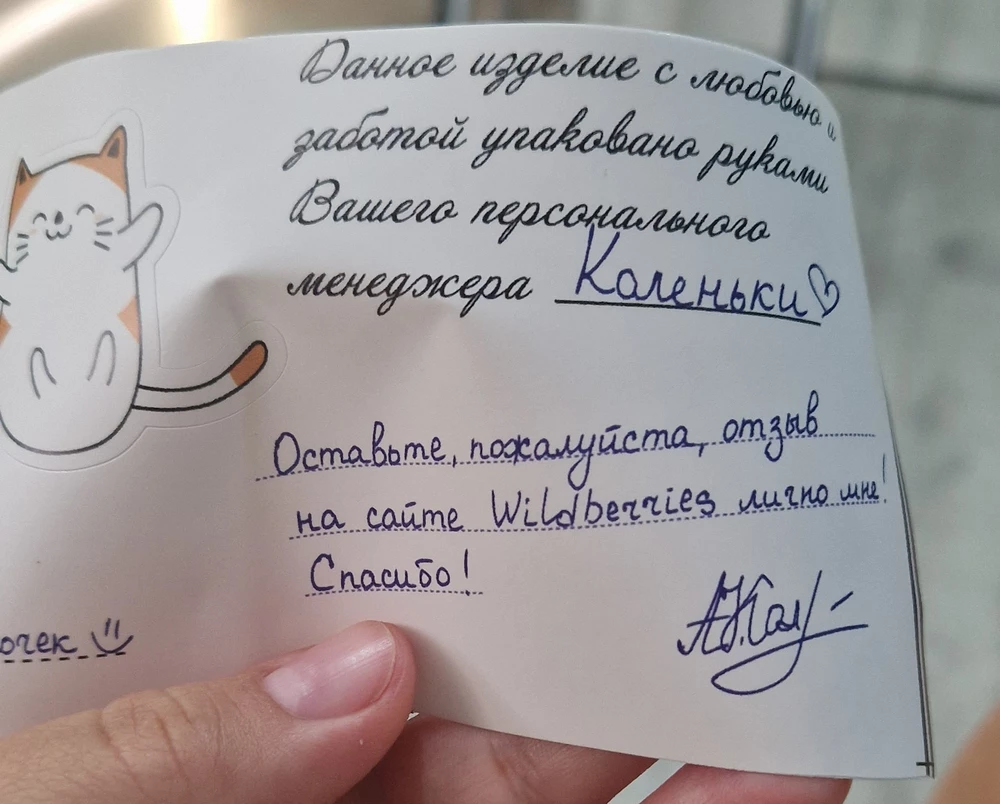 Данное изделие с любовью и
заботой упаковано руками
Вашего персонального
менеджера Коленьки
Оставьте, пожалуйста, отзыв
на сайте Wildberries лично мне!
Спасибо!
очек